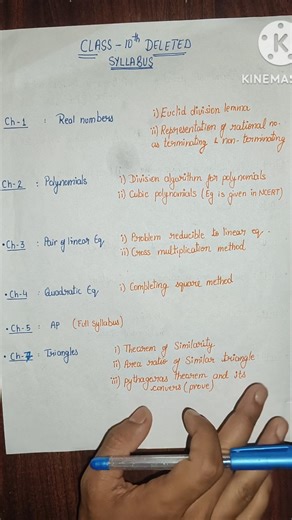 CLASS - 10th DELETED
SYLLABUS
K
KINEMAS
Ch-1 : Real numbers
i) Euclid division lemma
ii) Representation of rational no.
as terminating & non-terminating
Ch-2 : Polynomials
i) Division algorithm for polynomials
ii) Cubic polynomials (Eg is given in NCERT)
Ch-3 : Pair of linear Eq
i) Problem reducible to linear eq.
ii) Cross multiplication method
Ch-4 : Quadratic Eq
i) Completing square method
Ch-5 : AP (Full Syllabus)
Ch-7 : Triangles
i) Theorem of Similarity
ii) Area ratio of Similar triangle
iii) pythagoras theorem and its
convers (prove)